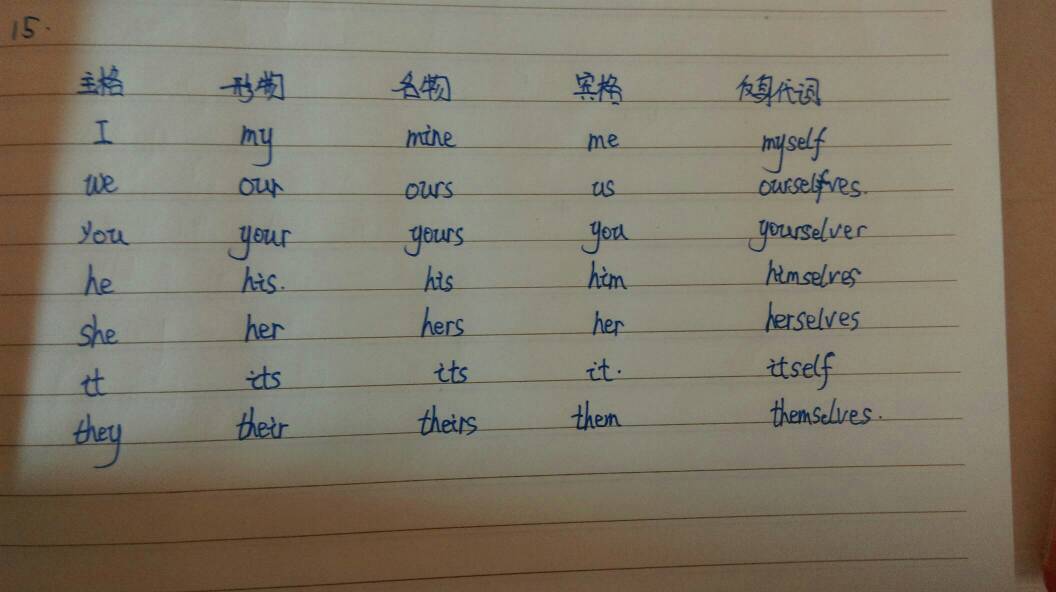 15.
主格 形物 名物 宾格 反身代词
I my mine me myself
we our ours us ourselves.
you your yours you yourselver
he his. his him himselves
she her hers her herselves
it its its it. itself
they their theirs them themselves.